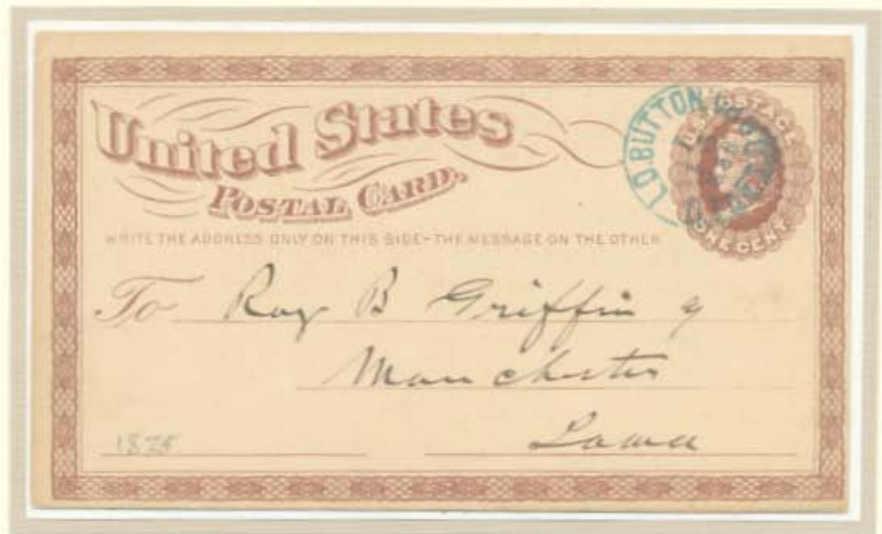 United States
POSTAL CARD.
WRITE THE ADDRESS ONLY ON THIS SIDE-THE MESSAGE ON THE OTHER
U.S. POSTAGE
ONE CENT
L.D. BUTTON
To Roy B Griffin
Manchester
Iowa
1875